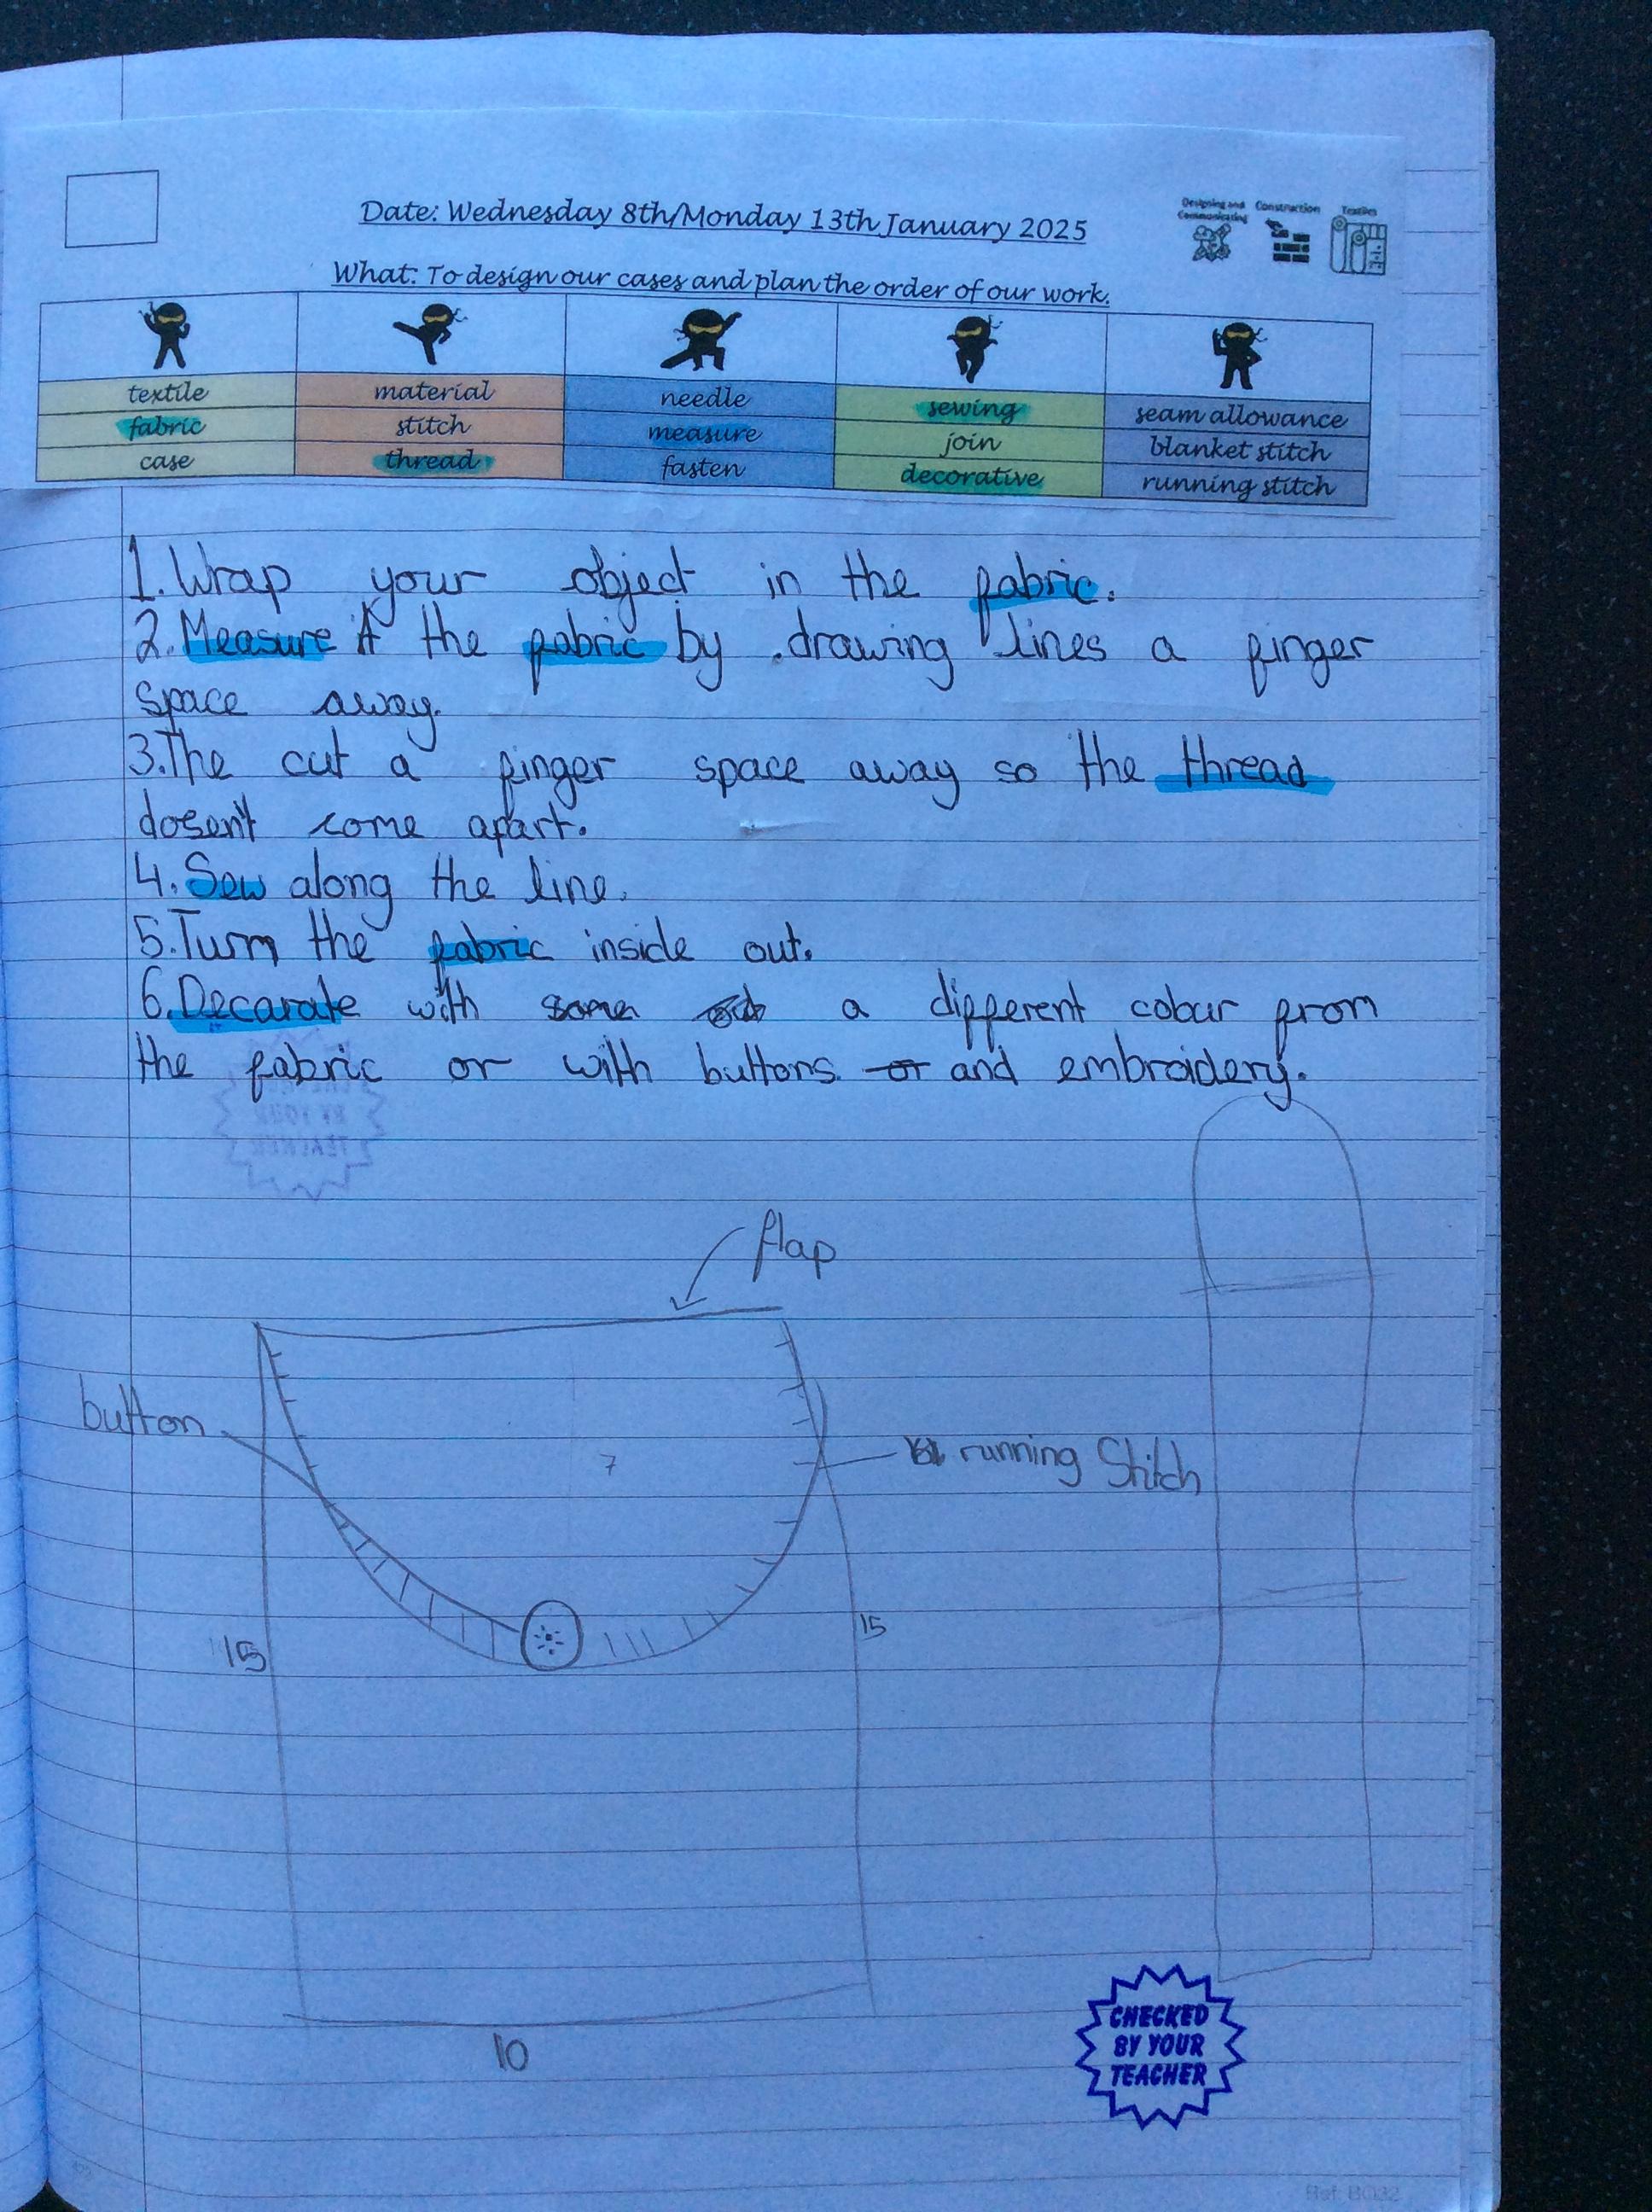 Date: Wednesday 8th/Monday 13th January 2025
Designing and Communicating Construction Textiles
What: To design our cases and plan the order of our work.
textile material needle sewing seam allowance
fabric stitch measure join blanket stitch
case thread fasten decorative running stitch
1. Wrap your object in the fabric.
2. Measure the fabric by drawing lines a finger
space away.
3. The cut a finger space away so the thread
dosen't come apart.
4. Sew along the line.
5. Turn the fabric inside out.
6. Decarate with some a different colour from
the fabric or with buttons or and embroidery.
flap
button
7
running Stitch
15
15
10
CHECKED
BY YOUR
TEACHER